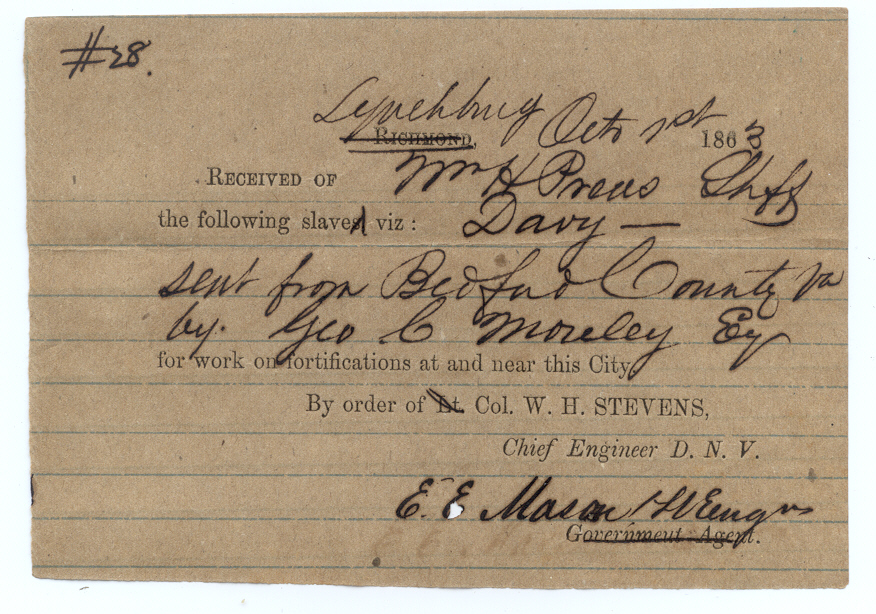 #28.
Lynchburg Octo 1st 1863
RICHMOND,
RECEIVED OF Wm H Preas Shff
the following slaves, viz: Davy —
sent from Bedford County Va
by. Geo C Moseley Esq
for work on fortifications at and near this City
By order of Lt. Col. W. H. STEVENS,
Chief Engineer D. N. V.
E. E Mason
Government Agent.